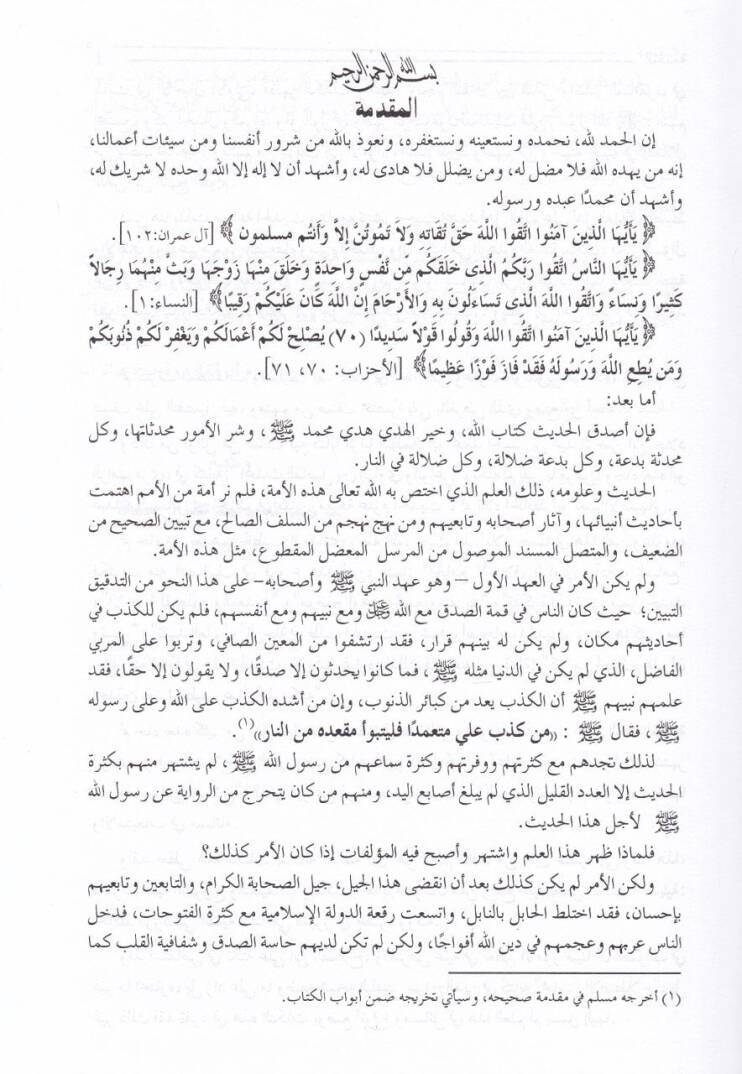 بسم الله الرحمن الرحيم
المقدمة
إن الحمد لله، نحمده ونستعينه ونستغفره، ونعوذ بالله من شرور أنفسنا ومن سيئات أعمالنا،
إنه من يهده الله فلا مضل له، ومن يضلل فلا هادى له، وأشهد أن لا إله إلا الله وحده لا شريك له،
وأشهد أن محمدًا عبده ورسوله.
﴿ يَأَيُّهَا الَّذِينَ آمَنُوا اتَّقُوا اللَّهَ حَقَّ تُقَاتِهِ وَلاَ تَمُوتُنَّ إِلاَّ وَأَنتُم مسلمون ﴾ [آل عمران:١٠٢].
﴿ يَأَيُّهَا النَّاسُ اتَّقُوا رَبَّكُمُ الَّذِى خَلَقَكُم مِّن نَّفْسٍ وَاحِدَةٍ وَخَلَقَ مِنْهَا زَوْجَهَا وَبَثَّ مِنْهُمَا رِجَالاً
كَثِيرًا وَنِسَاءً وَاتَّقُوا اللَّهَ الَّذى تَسَاءَلُونَ بِهِ وَالأَرْحَامَ إِنَّ اللَّهَ كَانَ عَلَيْكُمْ رَقِيبًا﴾ [النساء:١].
﴿ يَأَيُّهَا الَّذِينَ آمَنُوا اتَّقُوا اللَّهَ وَقُولُوا قَوْلاً سَدِيدًا (٧٠) يُصْلِحْ لَكُمْ أَعْمَالَكُمْ وَيَغْفِرْ لَكُمْ ذُنُوبَكُمْ
وَمَن يُطِعِ اللَّهَ وَرَسُولَهُ فَقَدْ فَازَ فَوْزًا عَظِيمًا﴾ [الأحزاب: ٧٠، ٧١].
أما بعد:
فإن أصدق الحديث كتاب الله، وخير الهدي هدي محمد ﷺ، وشر الأمور محدثاتها، وكل
محدثة بدعة، وكل بدعة ضلالة، وكل ضلالة في النار.
الحديث وعلومه، ذلك العلم الذي اختص به الله تعالى هذه الأمة، فلم نر أمة من الأمم اهتمت
بأحاديث أنبيائها، وآثار أصحابه وتابعيهم ومن نهج نهجهم من السلف الصالح، مع تبيين الصحيح من
الضعيف، والمتصل المسند الموصول من المرسل المعضل المقطوع، مثل هذه الأمة.
ولم يكن الأمر في العهد الأول –وهو عهد النبي ﷺ وأصحابه– على هذا النحو من التدقيق
التبيين؛ حيث كان الناس في قمة الصدق مع الله ﷻ ومع نبيهم ومع أنفسهم، فلم يكن للكذب في
أحاديثهم مكان، ولم يكن له بينهم قرار، فقد ارتشفوا من المعين الصافي، وتربوا على المربي
الفاضل، الذي لم يكن في الدنيا مثله ﷺ، فما كانوا يحدثون إلا صدقًا، ولا يقولون إلا حقًا، فقد
علمهم نبيهم ﷺ أن الكذب يعد من كبائر الذنوب، وإن من أشده الكذب على الله وعلى رسوله
ﷺ، فقال ﷺ : «من كذب علي متعمدًا فليتبوأ مقعده من النار»(١).
لذلك تجدهم مع كثرتهم ووفرتهم وكثرة سماعهم من رسول الله ﷺ، لم يشتهر منهم بكثرة
الحديث إلا العدد القليل الذي لم يبلغ أصابع اليد، ومنهم من كان يتحرج من الرواية عن رسول الله
ﷺ لأجل هذا الحديث.
فلماذا ظهر هذا العلم واشتهر وأصبح فيه المؤلفات إذا كان الأمر كذلك؟
ولكن الأمر لم يكن كذلك بعد أن انقضى هذا الجيل، جيل الصحابة الكرام، والتابعين وتابعيهم
بإحسان، فقد اختلط الحابل بالنابل، واتسعت رقعة الدولة الإسلامية مع كثرة الفتوحات، فدخل
الناس عربهم وعجمهم في دين الله أفواجًا، ولكن لم تكن لديهم حاسة الصدق وشفافية القلب كما
(١) أخرجه مسلم في مقدمة صحيحه، وسيأتي تخريجه ضمن أبواب الكتاب.